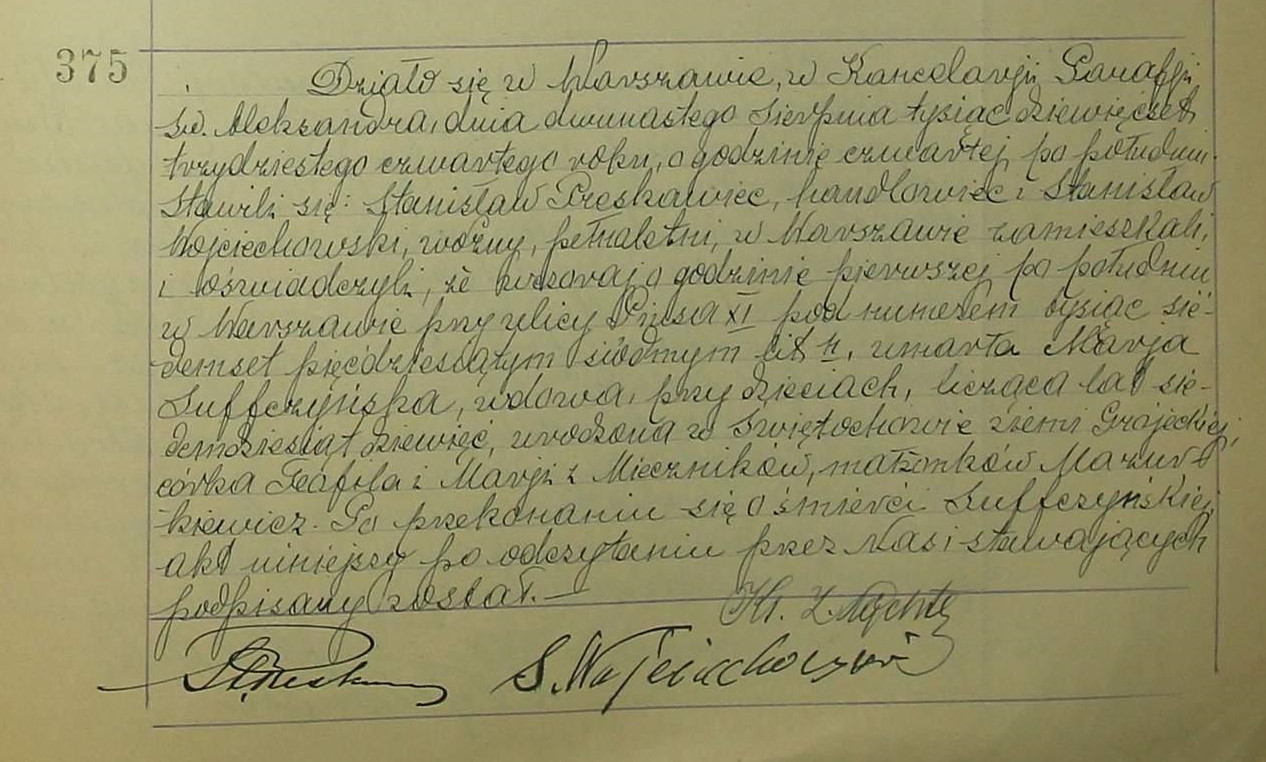 375
Działo się w Warszawie, w Kancelarji Parafji
św. Aleksandra, dnia dwunastego Sierpnia tysiąc dziewięćset
trzydziestego czwartego roku, o godzinie czwartej po południu.
Stawili się: Stanisław Preskawiec, handlowiec i Stanisław
Wojciechowski, woźny, pełnoletni, w Warszawie zamieszkali,
i oświadczyli, że wczoraj o godzinie pierwszej po południu
w Warszawie przy ulicy Piusa XI pod numerem tysiąc sie-
demset pięćdziesiątym siódmym lit H, umarła Marja
Suffczyńska, wdowa, przy dzieciach, licząca lat sie-
demdziesiąt dziewięć, urodzona w Świętochowie ziemi Grójeckiej,
córka Teofila i Marji z Mieczników, małżonków Mazur-
kiewicz. Po przekonaniu się o śmierci Suffczyńskiej,
akt niniejszy po odczytaniu przez Nas i stawających
podpisany został.—
Ks.
S. Wojciechowski